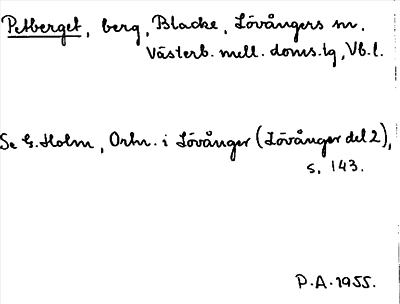 Petberget, berg, Blacke, Lövångers sn,
Västerb. mell. doms.tg, Vb.l.
Se G. Holm, Ortn. i Lövånger (Lövånger del 2),
s. 143.
P.A. 1955.